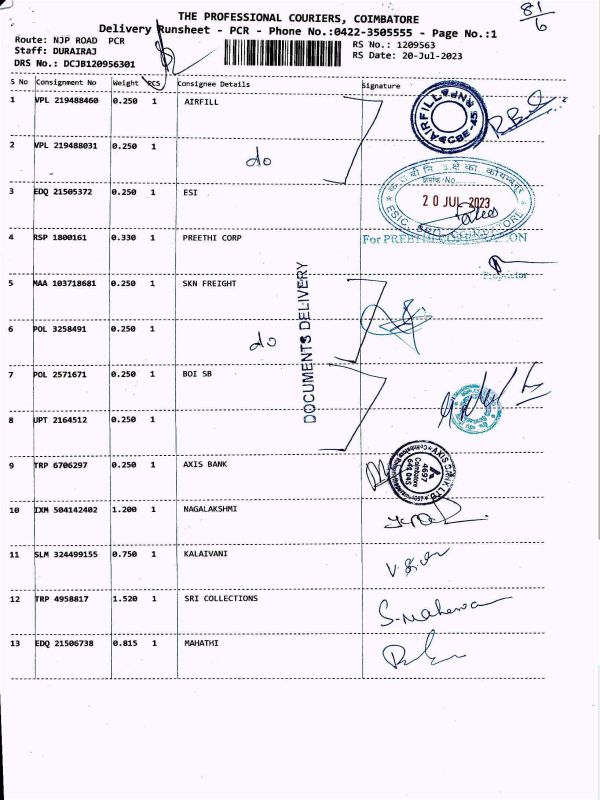 THE PROFESSIONAL COURIERS, COIMBATORE
81/6
Delivery Runsheet - PCR - Phone No.:0422-3505555 - Page No.:1
Route: NJP ROAD PCR
RS No.: 1209563
Staff: DURAIRAJ
RS Date: 20-Jul-2023
DRS No.: DCJB120956301
S No Consignment No Weight PCS Consignee Details Signature
1 VPL 219488460 0.250 1 AIRFILL
AIRFILL CBE-45
2 VPL 219488031 0.250 1 do
3 EDQ 21505372 0.250 1 ESI
20 JUL 2023
4 RSP 1800161 0.330 1 PREETHI CORP
For PREETHI
Proprietor
5 MAA 103718681 0.250 1 SKN FREIGHT
6 POL 3258491 0.250 1 do
DOCUMENTS DELIVERY
7 POL 2571671 0.250 1 BOI SB
8 UPT 2164512 0.250 1
9 TRP 6706297 0.250 1 AXIS BANK
AXIS BANK LTD
4697
Coimbatore
641 045
10 IXM 504142402 1.200 1 NAGALAKSHMI
11 SLM 324499155 0.750 1 KALAIVANI
12 TRP 4958817 1.520 1 SRI COLLECTIONS
13 EDQ 21506738 0.815 1 MAHATHI